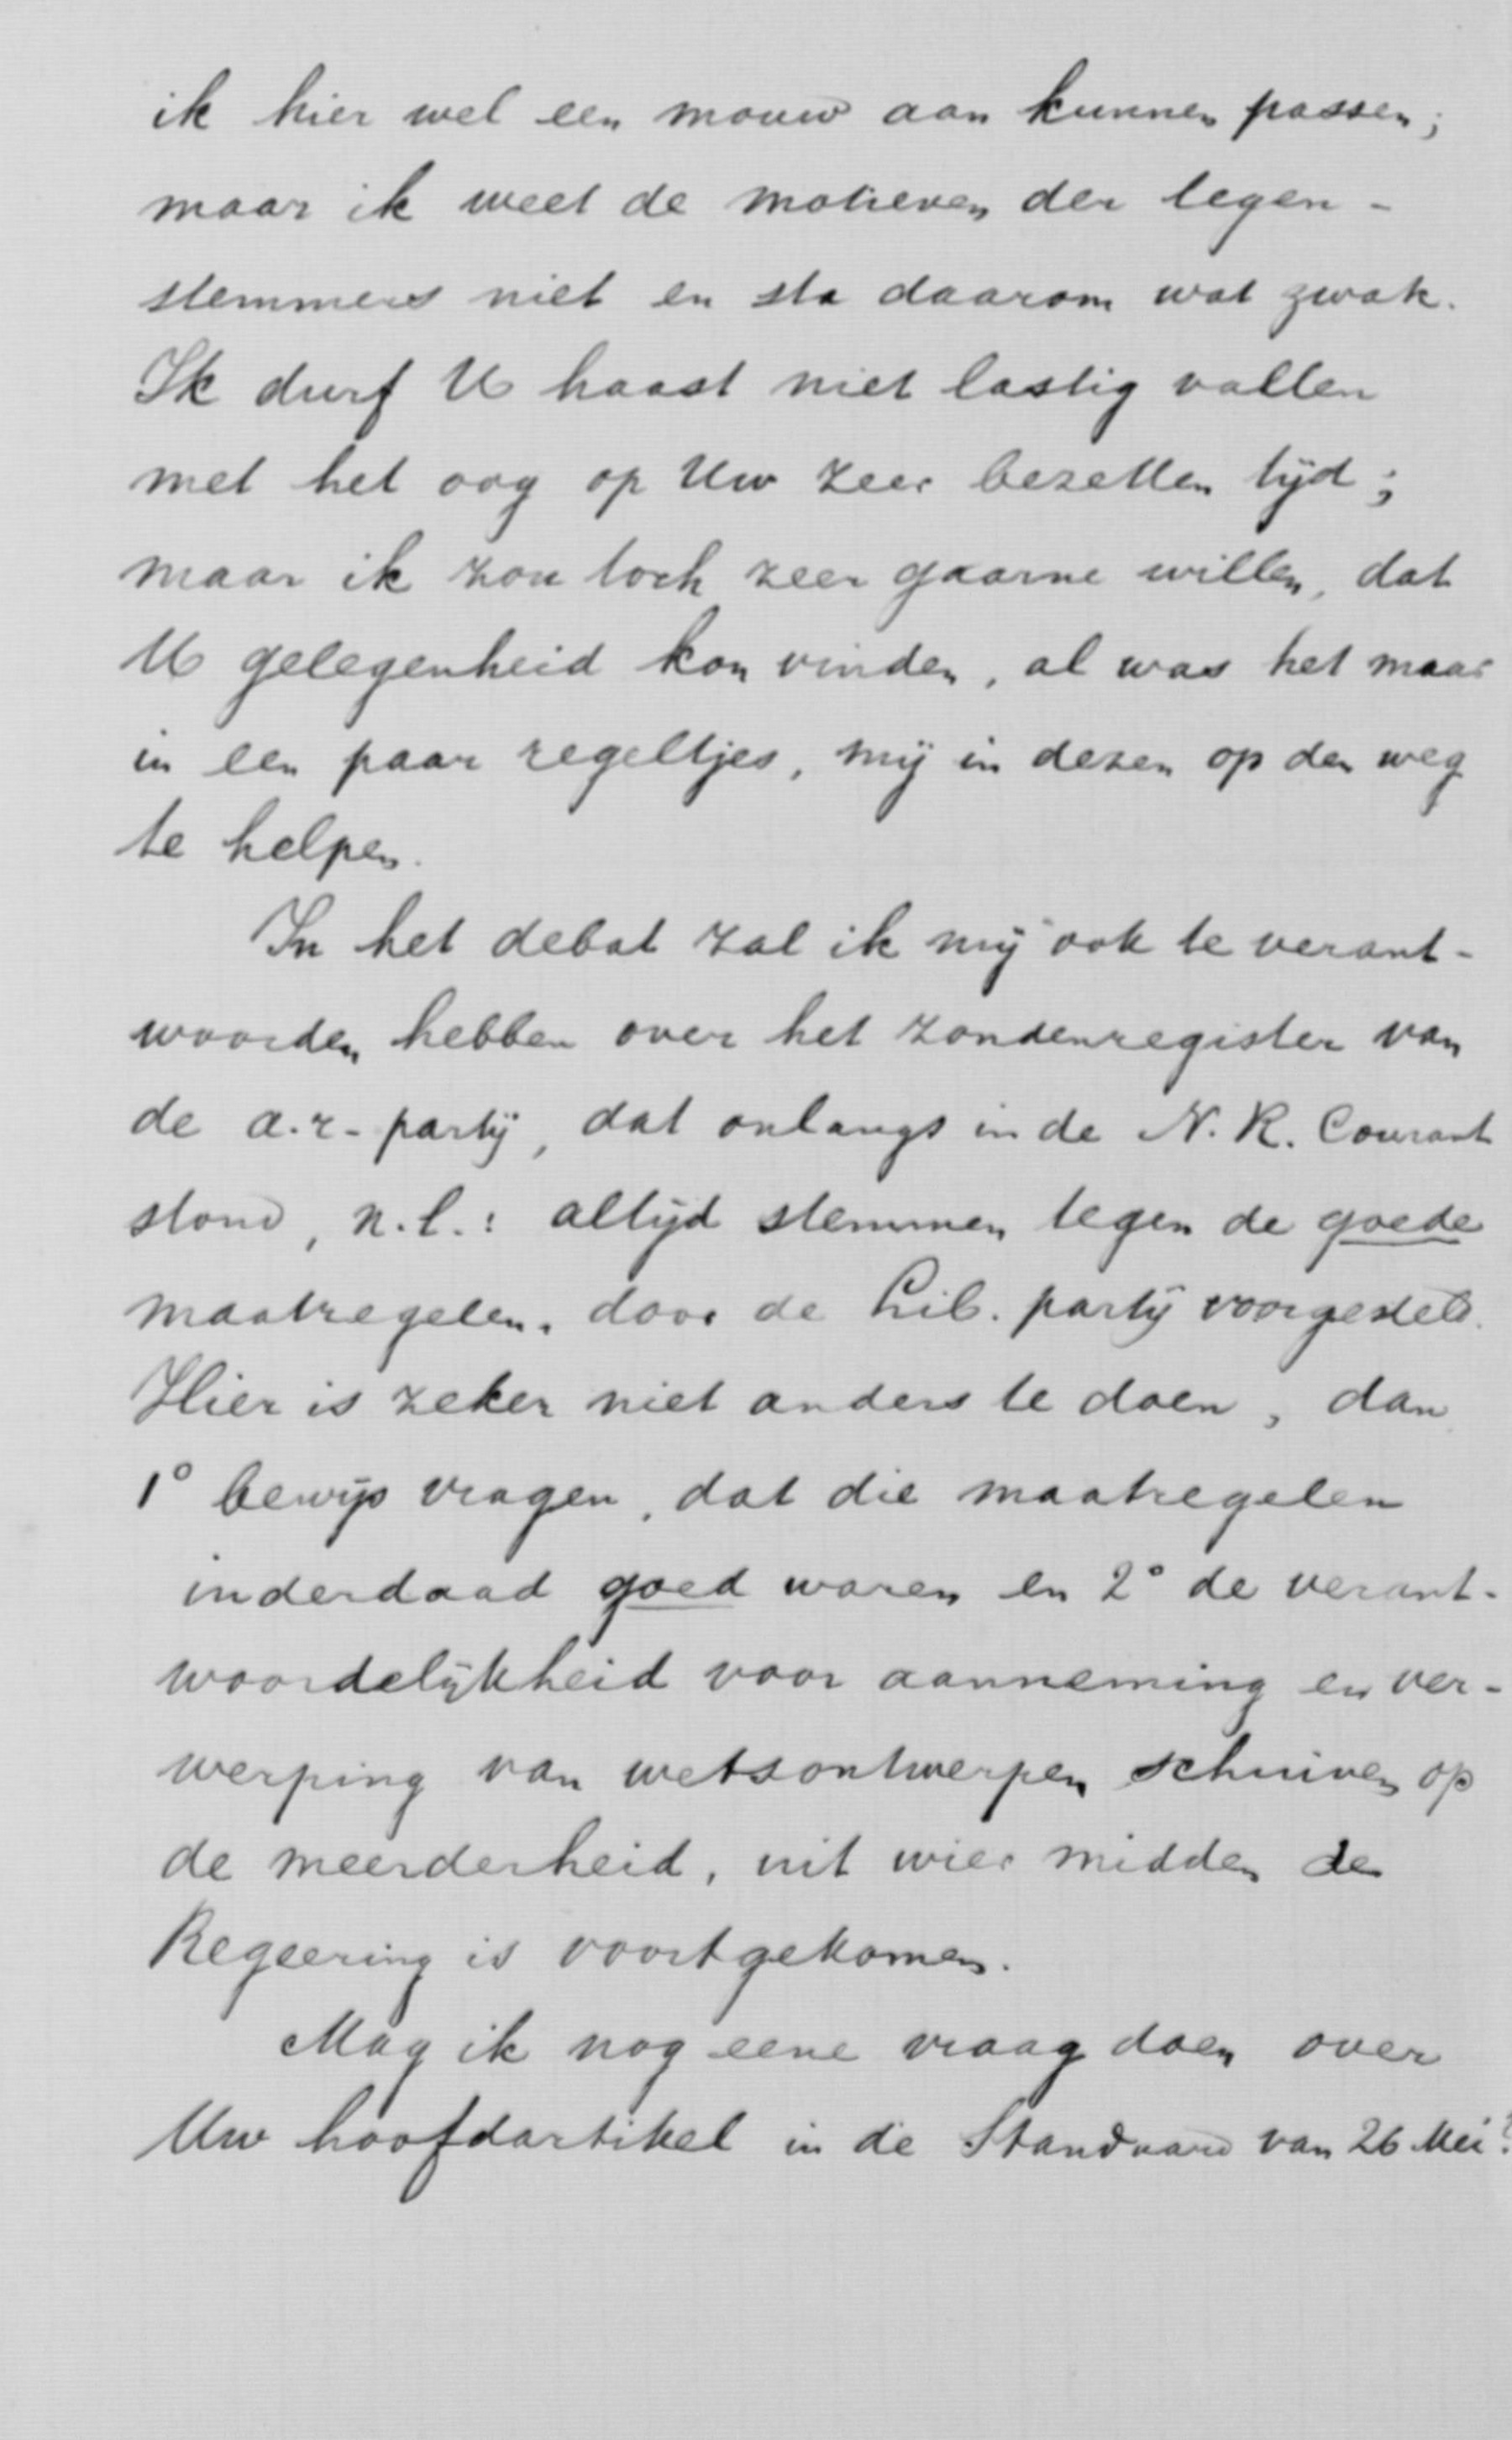 ik hier wel een mouw aan kunnen passen;
maar ik weet de motieven der tegen-
stemmers niet en sta daarom wat zwak.
Ik durf U haast niet lastig vallen
met het oog op Uw zeer bezetten tijd;
maar ik zou toch zeer gaarne willen, dat
U gelegenheid kon vinden, al was het maar
in een paar regeltjes, mij in dezen op den weg
te helpen.
In het debat zal ik mij ook te verant-
woorden hebben over het zondenregister van
de a.r.-partij, dat onlangs in de N. R. Courant
stond, n.l.: altijd stemmen tegen de goede
maatregelen, door de Lib. partij voorgesteld.
Hier is zeker niet anders te doen, dan
1° bewijs vragen, dat die maatregelen
inderdaad goed waren en 2° de verant-
woordelijkheid voor aanneming en ver-
werping van wetsontwerpen schuiven op
de meerderheid, uit wier midden de
Regeering is voortgekomen.
Mag ik nog eene vraag doen over
Uw hoofdartikel in de Standaard van 26 Mei?